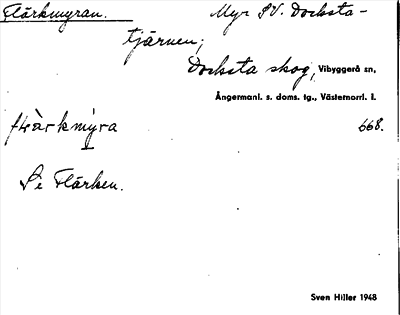 Flärkmyran. Myr SV. Docksta-
tjärnen;
Docksta skog, Vibyggerå sn,
Ångermanl. s. doms. tg., Västernorrl. l.
668.
Se Flärken.
Sven Hiller 1948